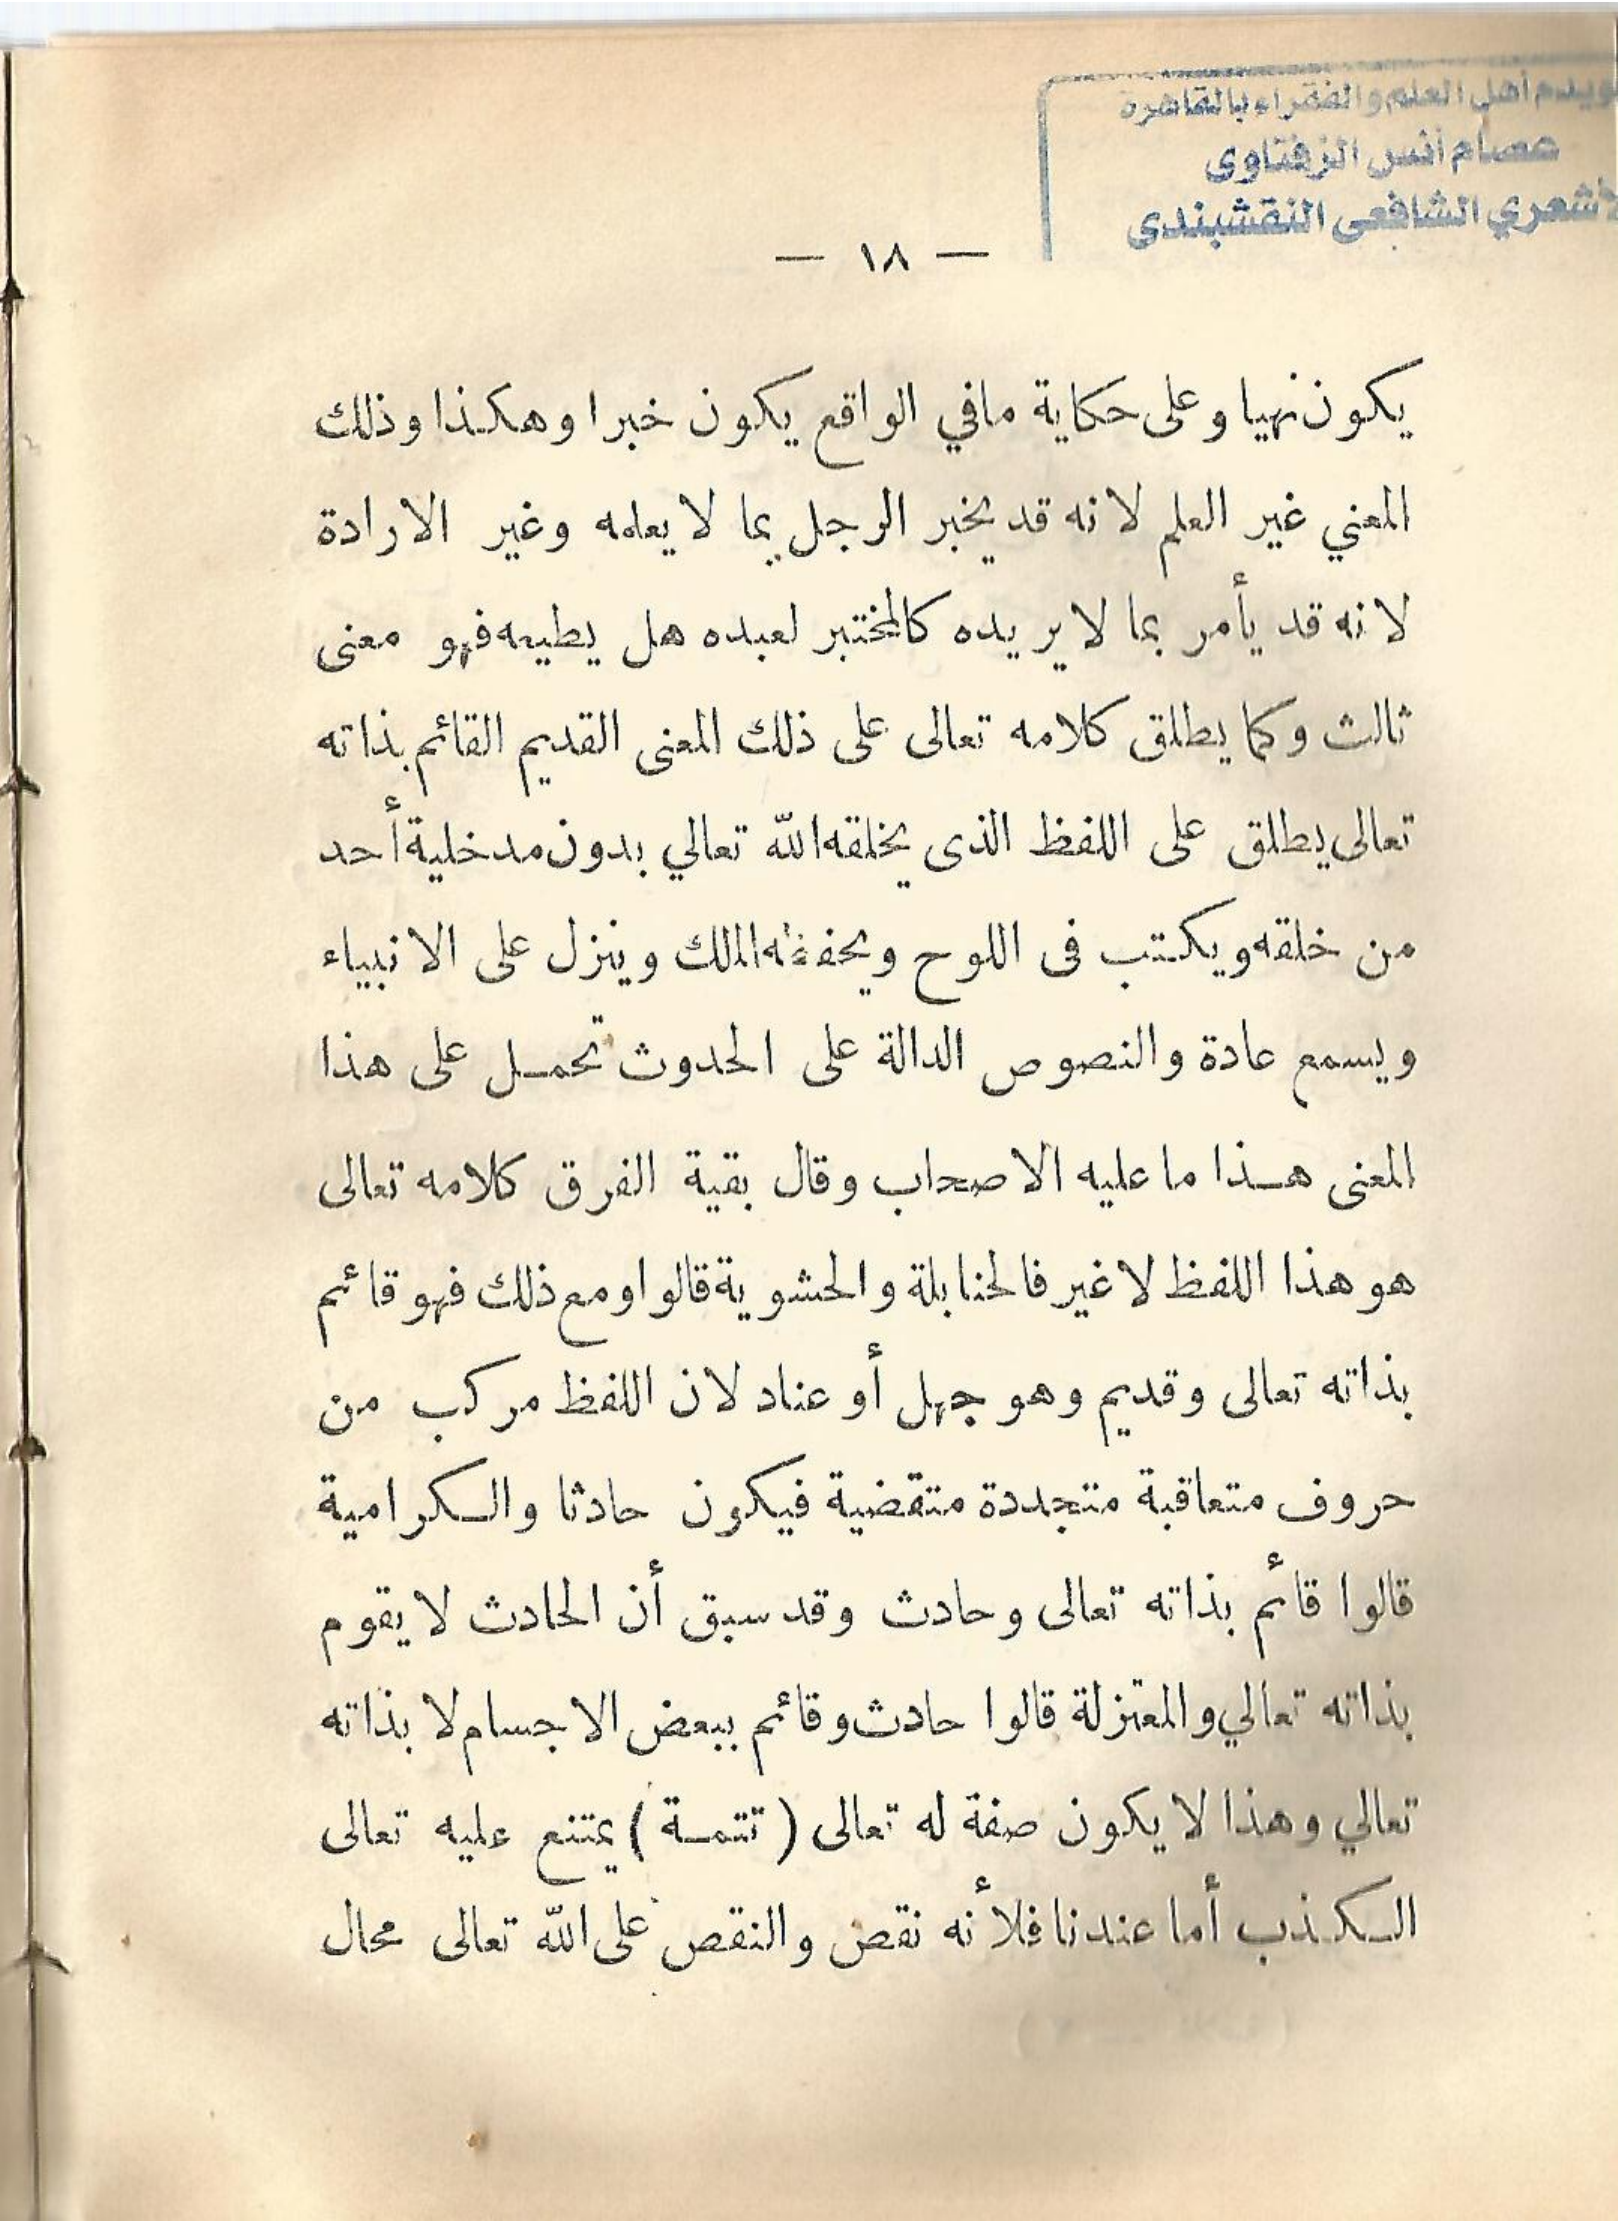 خويدم أهل العلم والفقراء بالقاهرة
عصام أنس الزفتاوى
الأشعري الشافعى النقشبندى
— ١٨ —
يكون نهيا وعلى حكاية مافي الواقع يكون خبرا وهكذا وذلك
المعني غير العلم لانه قد يخبر الرجل بما لا يعلمه وغير الارادة
لانه قد يأمر بما لا يريده كالمختبر لعبده هل يطيعه فهو معنى
ثالث وكما يطلق كلامه تعالى على ذلك المعنى القديم القائم بذاته
تعالى يطلق على اللفظ الذى يخلقه الله تعالي بدون مدخلية أحد
من خلقه ويكتب فى اللوح ويحفظه الملك وينزل على الانبياء
ويسمع عادة والنصوص الدالة على الحدوث تحمل على هذا
المعنى هذا ما عليه الاصحاب وقال بقية الفرق كلامه تعالى
هو هذا اللفظ لا غير فالحنابلة والحشوية قالوا ومع ذلك فهو قائم
بذاته تعالى وقديم وهو جهل أو عناد لان اللفظ مركب من
حروف متعاقبة متجددة متقضية فيكون حادثا والكرامية
قالوا قائم بذاته تعالى وحادث وقد سبق أن الحادث لا يقوم
بذاته تعالي والمعتزلة قالوا حادث وقائم ببعض الاجسام لا بذاته
تعالي وهذا لا يكون صفة له تعالى ( تتمة ) يمتنع عليه تعالى
الكذب أما عندنا فلأنه نقص والنقص على الله تعالى محال